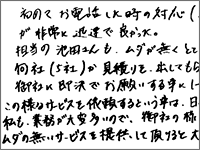 初めてお電話した時の対応(
が非常に迅速で良かった。
担当の池田さんも、ムダが無くとて
何社(5社)か見積りを出してもら
御社に即決でお願いする事に
この様なサービスを依頼するという事は、日
私も、業務が大変多いので、御社の様
ムダの無いサービスを提供して頂けると大